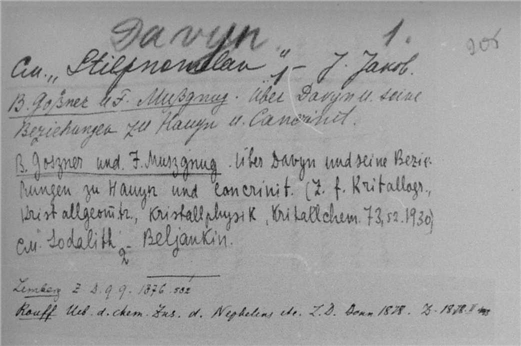 Davyn. 1.
206
см. "Stilpnomelan" 1 - J. Jakob.
B. Goßner u F. Mußgnug. Über Davyn u. seine
Beziehungen zu Hauyn u. Cancrinit.
B. Goszner und F. Muszgnug. Über Davyn und seine Bezie-
hungen zu Hauyn und Cancrinit. (Z. f. Kristallogr.,
Kristallgeomtr., Kristallphysik, Kristallchem. 73, 52. 1930)
см. Sodalith 2 - Beljankin.
Lemberg Z. D. g. g. 1876. 532
Rauff Ueb. d. chem. Zus. d. Nephelins etc. I. D. Bonn 1878. Z. 1878. II